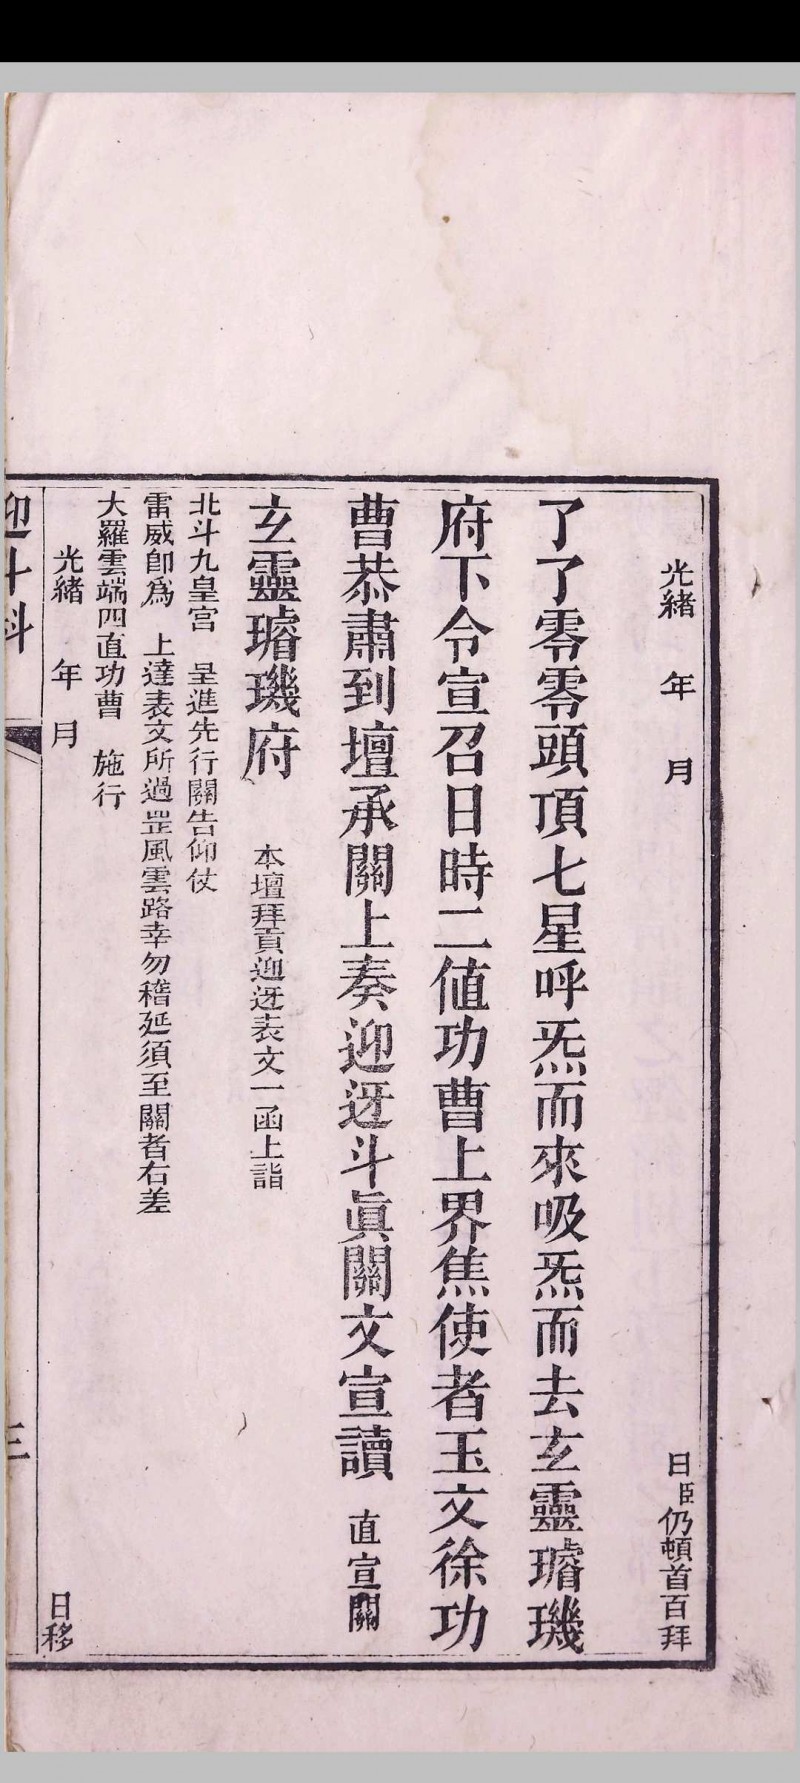 光緒 年 月 日臣仍頓首百拜
了了零零頭頂七星呼炁而來吸炁而去玄靈璿璣
府下令宣召日時二值功曹上界焦使者玉文徐功
曹恭肅到壇承關上奏迎迓斗眞關文宣讀 直宣關
玄靈璿璣府 本壇拜貢迎迓表文一函上詣
北斗九皇宮 呈進先行關告仰仗
雷威卽爲 上達表文所過罡風雲路幸勿稽延須至關者右差
大羅雲端四直功曹 施行
光緒 年 月 日移
迎斗科 三